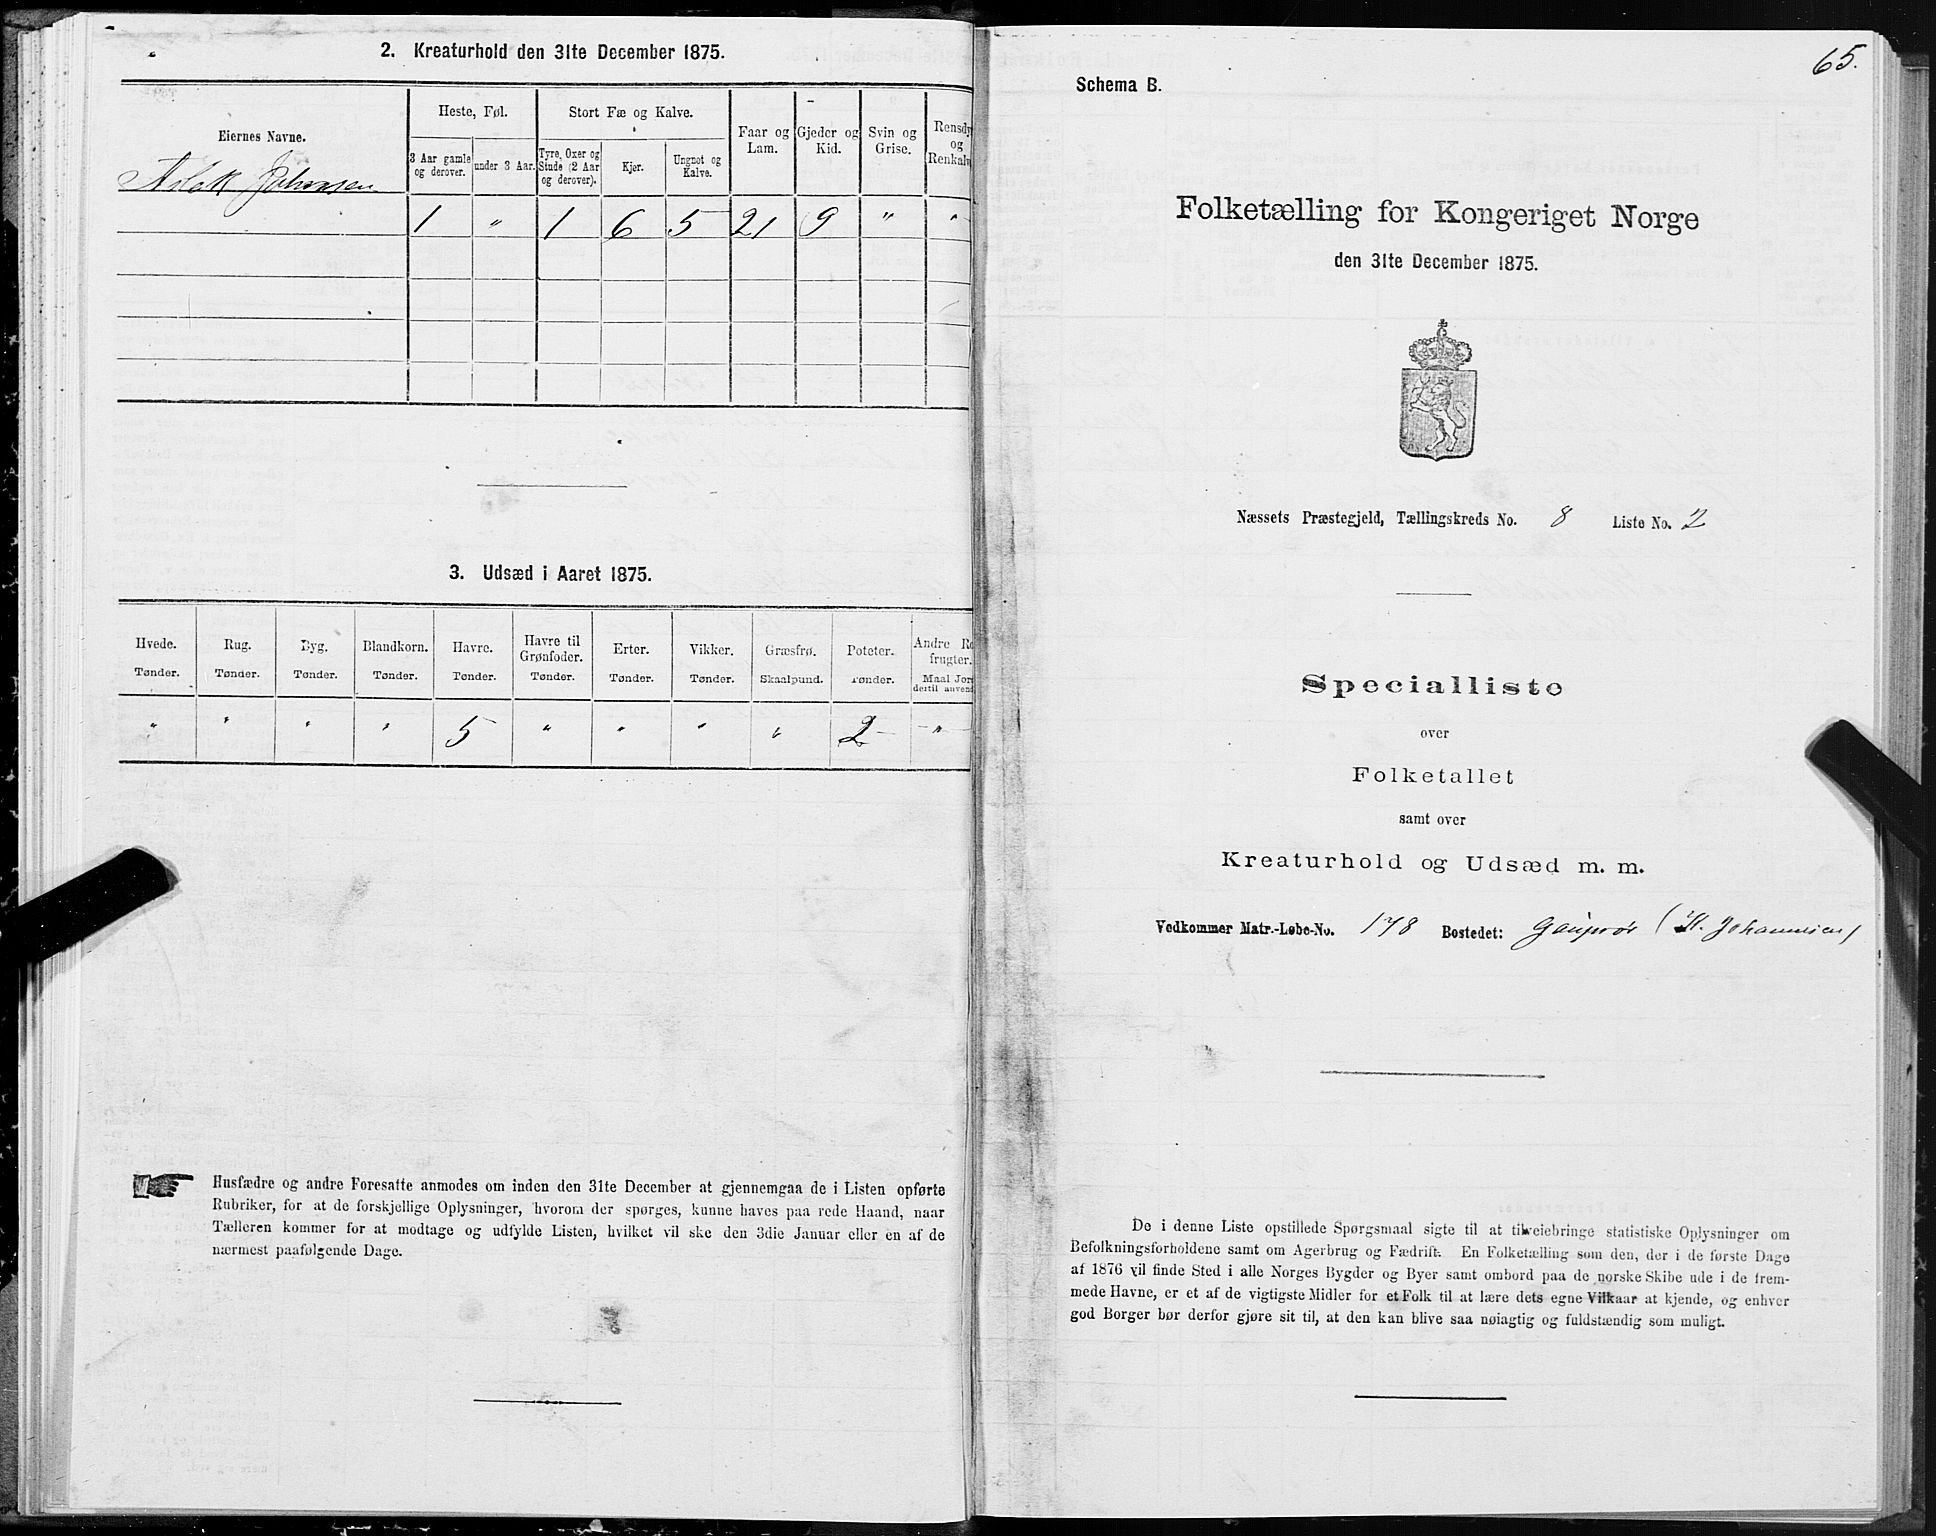 2. Kreaturhold den 31te December 1875.
Eiernes Navne.
Heste, Føl.
Stort Fæ og Kalve.
Faar og Lam.
Gjeder og Kid.
Svin og Grise.
Rensdy
og
Renkalv
3 Aar gamle og derover.
under 3 Aar.
Tyre, Oxer og Stude (2 Aar og derover).
Kjør.
Ungnøt og Kalve.
Aslak Johnsen
1 " 1 6 5 21 9 " "
3. Udsæd i Aaret 1875.
Hvede. Rug. Byg. Blandkorn. Havre. Havre til Grønfoder. Erter. Vikker. Græsfrø. Poteter. Andre Ro
frugter.
Tønder. Tønder. Tønder. Tønder. Tønder. Tønder. Tønder. Tønder. Skaalpund. Tønder. Maal Jor
dertil anvend
" " " " 5 " " " " 2 "
Husfædre og andre Foresatte anmodes om inden den 31te December at gjennemgaa de i Listen opførte
Rubriker, for at de forskjellige Oplysninger, hvorom der spørges, kunne haves paa rede Haand, naar
Tælleren kommer for at modtage og udfylde Listen, hvilket vil ske den 3die Januar eller en af de
nærmest paafølgende Dage.
65.
Schema B.
Folketælling for Kongeriget Norge
den 31te December 1875.
Næssets Præstegjeld, Tællingskreds No. 8 Liste No. 2
Specialliste
over
Folketallet
samt over
Kreaturhold og Udsæd m. m.
Vedkommer Matr.-Løbe-No. 178 Bostedet: Gauprør ( Johannesen)
De i denne Liste opstillede Spørgsmaal sigte til at tilveiebringe statistiske Oplysninger om
Befolkningsforholdene samt om Agerbrug og Fædrift. En Folketælling som den, der i de første Dage
af 1876 vil finde Sted i alle Norges Bygder og Byer samt ombord paa de norske Skibe ude i de frem-
mede Havne, er et af de vigtigste Midler for et Folk til at lære dets egne Vilkaar at kjende, og enhver
god Borger bør derfor gjøre sit til, at den kan blive saa nøiagtig og fuldstændig som muligt.